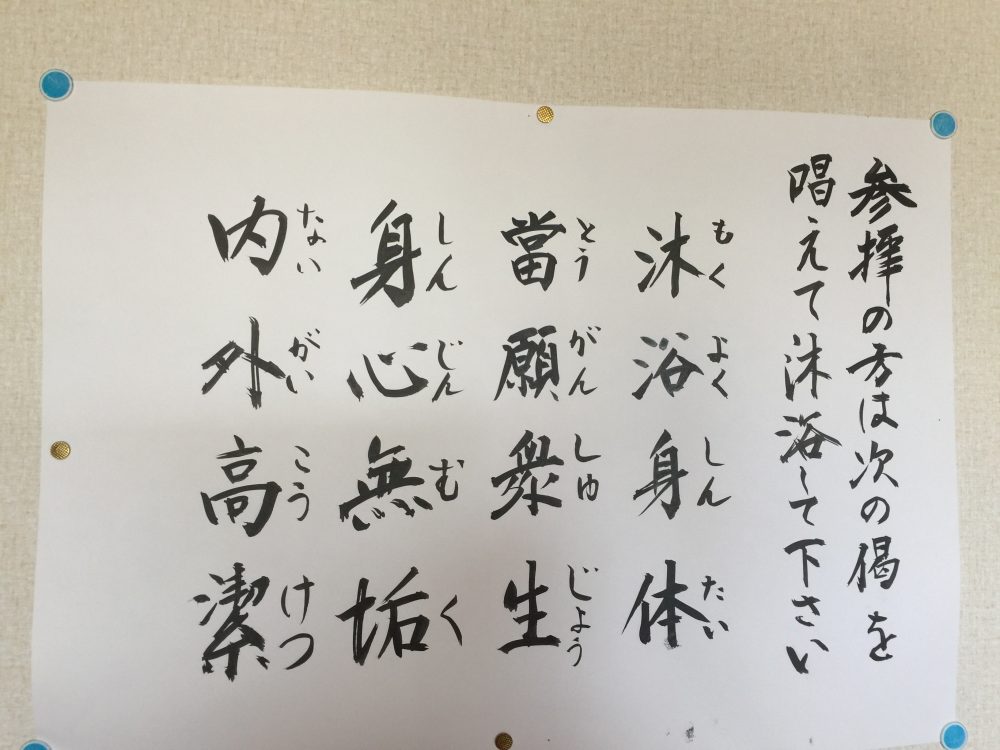 参拝の方は次の偈を
唱えて沐浴して下さい
沐浴身体
もくよくしんたい
當願衆生
とうがんしゅじょう
身心無垢
しんじんむく
内外高潔
ないがいこうけつ